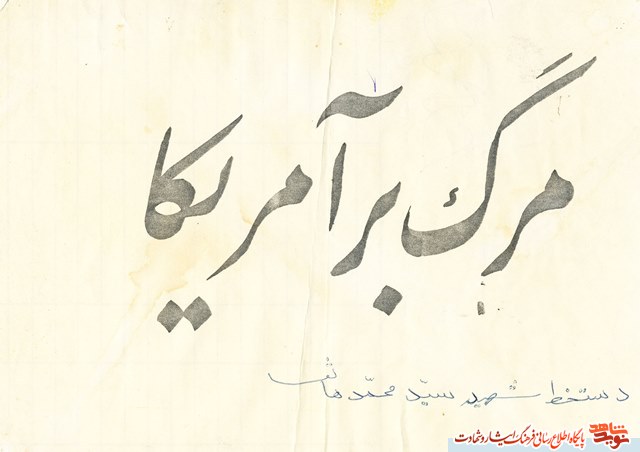 مرگ بر آمریکا
دستخط شهید سید محمّد
نوید شاهد
پایگاه اطلاع رسانی فرهنگ ایثار و شهادت